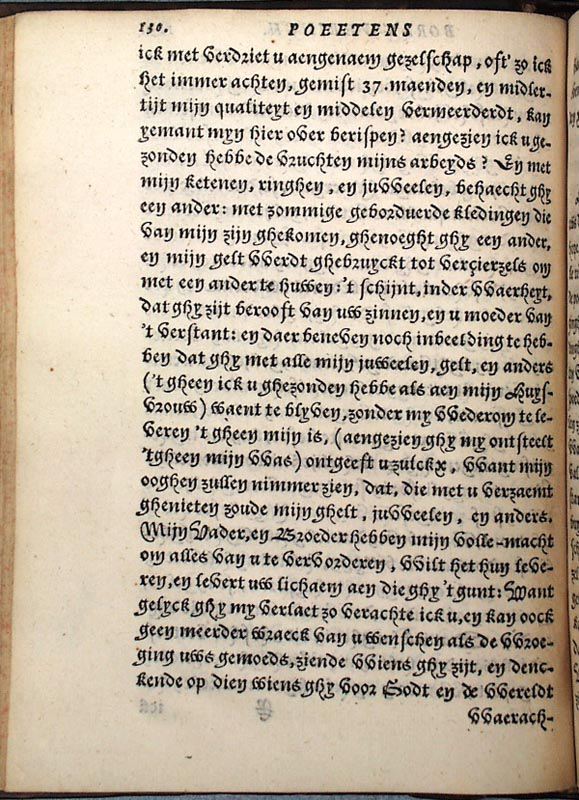 130. POEETENS
ick met verdriet u aengenaem gezelschap, oft' zo ick
het immer achten, gemist 37. maenden, en midler-
tijt mijn qualiteyt en middelen vermeerderdt, kan
yemant myn hier over berispen? aengezien ick u ge-
zonden hebbe de vruchten mijns arbeyds? En met
mijn ketenen, ringhen, en juvveelen, behaecht ghy
een ander: met zommige geborduerde kledingen die
van mijn zijn ghekomen, ghenoeght ghy een ander,
en mijn gelt vverdt ghebruyckt tot verçierzels om
met een ander te huwen: 't schijnt, inder vvaerheyt,
dat ghy zijt berooft van uw zinnen, en u moeder van
't verstant: en daer beneven noch inbeelding te heb-
ben dat ghy met alle mijn juweelen, gelt, en anders
('t gheen ick u ghezonden hebbe als aen mijn Huys-
vrouw) waent te blyven, zonder my vvederom te le-
veren 't gheen mijn is, (aengezien ghy my ontsteelt
'tgheen mijn vvas) ontgeeft u zulckx, vvant mijn
ooghen zullen nimmer zien, dat, die met u verzaemt
ghenieten zoude mijn ghelt, juvveelen, en anders.
Mijn Vader, en Broeder hebben mijn volle-macht
om alles van u te vervorderen, vvilt het hun leve-
ren, en levert uw lichaem aen die ghy 't gunt: Want
gelyck ghy my verlaet zo verachte ick u, en kan oock
geen meerder wraeck van u wenschen als de vvroe-
ging uws gemoeds, ziende vviens ghy zijt, en denc-
kende op dien wiens ghy voor Godt en de vvereldt
vvaerach-